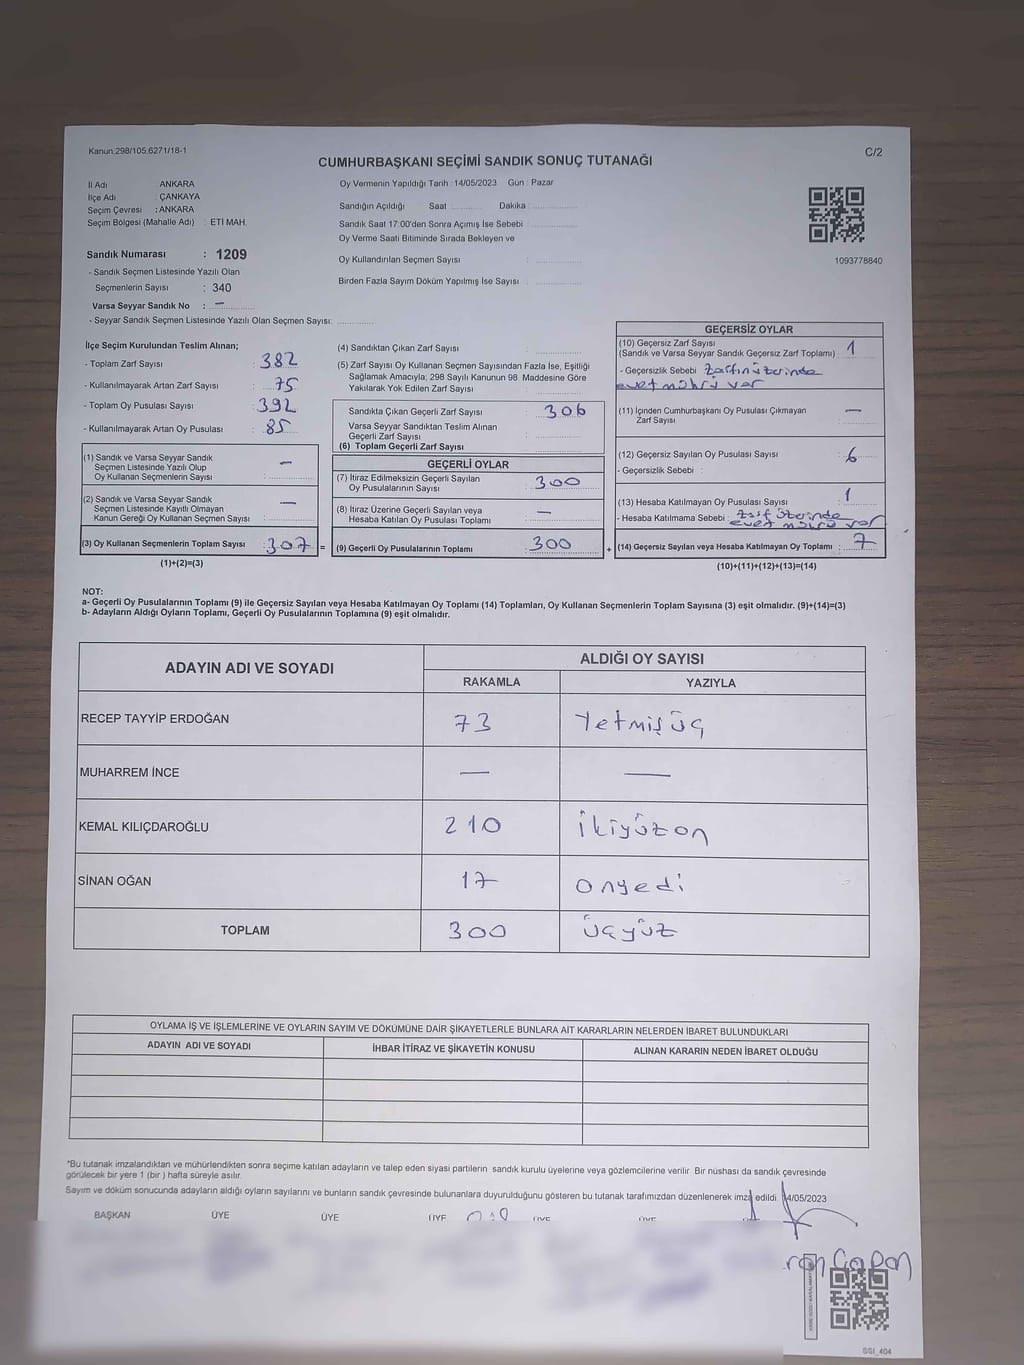 Kanun,298/105,6271/18-1
C/2
CUMHURBAŞKANI SEÇİMİ SANDIK SONUÇ TUTANAĞI
İl Adı ANKARA
İlçe Adı : ÇANKAYA
Seçim Çevresi : ANKARA
Seçim Bölgesi (Mahalle Adı) : ETİ MAH.
Sandık Numarası : 1209
- Sandık Seçmen Listesinde Yazılı Olan
Seçmenlerin Sayısı : 340
Varsa Seyyar Sandık No : —
- Seyyar Sandık Seçmen Listesinde Yazılı Olan Seçmen Sayısı:
Oy Vermenin Yapıldığı Tarih : 14/05/2023 Gün : Pazar
Sandığın Açıldığı Saat Dakika
Sandık Saat 17:00'den Sonra Açımış İse Sebebi :
Oy Verme Saati Bitiminde Sırada Bekleyen ve
Oy Kullandırılan Seçmen Sayısı :
Birden Fazla Sayım Döküm Yapılmış İse Sayısı :
1093778840
İlçe Seçim Kurulundan Teslim Alınan;
- Toplam Zarf Sayısı : 382
- Kullanılmayarak Artan Zarf Sayısı : 75
- Toplam Oy Pusulası Sayısı : 392
- Kullanılmayarak Artan Oy Pusulası : 85
(1) Sandık ve Varsa Seyyar Sandık
Seçmen Listesinde Yazılı Olup
Oy Kullanan Seçmenlerin Sayısı : —
(2) Sandık ve Varsa Seyyar Sandık
Seçmen Listesinde Kayıtlı Olmayan
Kanun Gereği Oy Kullanan Seçmen Sayısı : —
(3) Oy Kullanan Seçmenlerin Toplam Sayısı : 307 =
(1)+(2)=(3)
(4) Sandıktan Çıkan Zarf Sayısı :
(5) Zarf Sayısı Oy Kullanan Seçmen Sayısından Fazla İse, Eşitliği
Sağlamak Amacıyla; 298 Sayılı Kanunun 98. Maddesine Göre
Yakılarak Yok Edilen Zarf Sayısı :
Sandıkta Çıkan Geçerli Zarf Sayısı : 306
Varsa Seyyar Sandıktan Teslim Alınan
Geçerli Zarf Sayısı :
(6) Toplam Geçerli Zarf Sayısı
GEÇERLİ OYLAR
(7) İtiraz Edilmeksizin Geçerli Sayılan
Oy Pusulalarının Sayısı : 300
(8) İtiraz Üzerine Geçerli Sayılan veya
Hesaba Katılan Oy Pusulası Toplamı : —
(9) Geçerli Oy Pusulalarının Toplamı : 300 +
GEÇERSİZ OYLAR
(10) Geçersiz Zarf Sayısı
(Sandık ve Varsa Seyyar Sandık Geçersiz Zarf Toplamı) : 1
- Geçersizlik Sebebi : Zarfın üzerinde
evet mührü var
(11) İçinden Cumhurbaşkanı Oy Pusulası Çıkmayan
Zarf Sayısı : —
(12) Geçersiz Sayılan Oy Pusulası Sayısı : 6
- Geçersizlik Sebebi :
(13) Hesaba Katılmayan Oy Pusulası Sayısı : 1
- Hesaba Katılmama Sebebi : Zarf üzerinde
evet mührü var
(14) Geçersiz Sayılan veya Hesaba Katılmayan Oy Toplamı : 7
(10)+(11)+(12)+(13)=(14)
NOT:
a- Geçerli Oy Pusulalarının Toplamı (9) ile Geçersiz Sayılan veya Hesaba Katılmayan Oy Toplamı (14) Toplamları, Oy Kullanan Seçmenlerin Toplam Sayısına (3) eşit olmalıdır. (9)+(14)=(3)
b- Adayların Aldığı Oyların Toplamı, Geçerli Oy Pusulalarının Toplamına (9) eşit olmalıdır.
ADAYIN ADI VE SOYADI ALDIĞI OY SAYISI
RAKAMLA YAZIYLA
RECEP TAYYİP ERDOĞAN 73 Yetmişüç
MUHARREM İNCE — —
KEMAL KILIÇDAROĞLU 210 ikiyüzon
SİNAN OĞAN 17 onyedi
TOPLAM 300 üçyüz
OYLAMA İŞ VE İŞLEMLERİNE VE OYLARIN SAYIM VE DÖKÜMÜNE DAİR ŞİKAYETLERLE BUNLARA AİT KARARLARIN NELERDEN İBARET BULUNDUKLARI
ADAYIN ADI VE SOYADI İHBAR İTİRAZ VE ŞİKAYETİN KONUSU ALINAN KARARIN NEDEN İBARET OLDUĞU
*Bu tutanak imzalandıktan ve mühürlendikten sonra seçime katılan adayların ve talep eden siyasi partilerin sandık kurulu üyelerine veya gözlemcilerine verilir. Bir nüshası da sandık çevresinde
görülecek bir yere 1 (bir ) hafta süreyle asılır.
Sayım ve döküm sonucunda adayların aldığı oyların sayılarını ve bunların sandık çevresinde bulunanlara duyurulduğunu gösteren bu tutanak tarafımızdan düzenlenerek imza edildi. 14/05/2023
BAŞKAN ÜYE ÜYE ÜYE ÜYE ÜYE
SSI_404